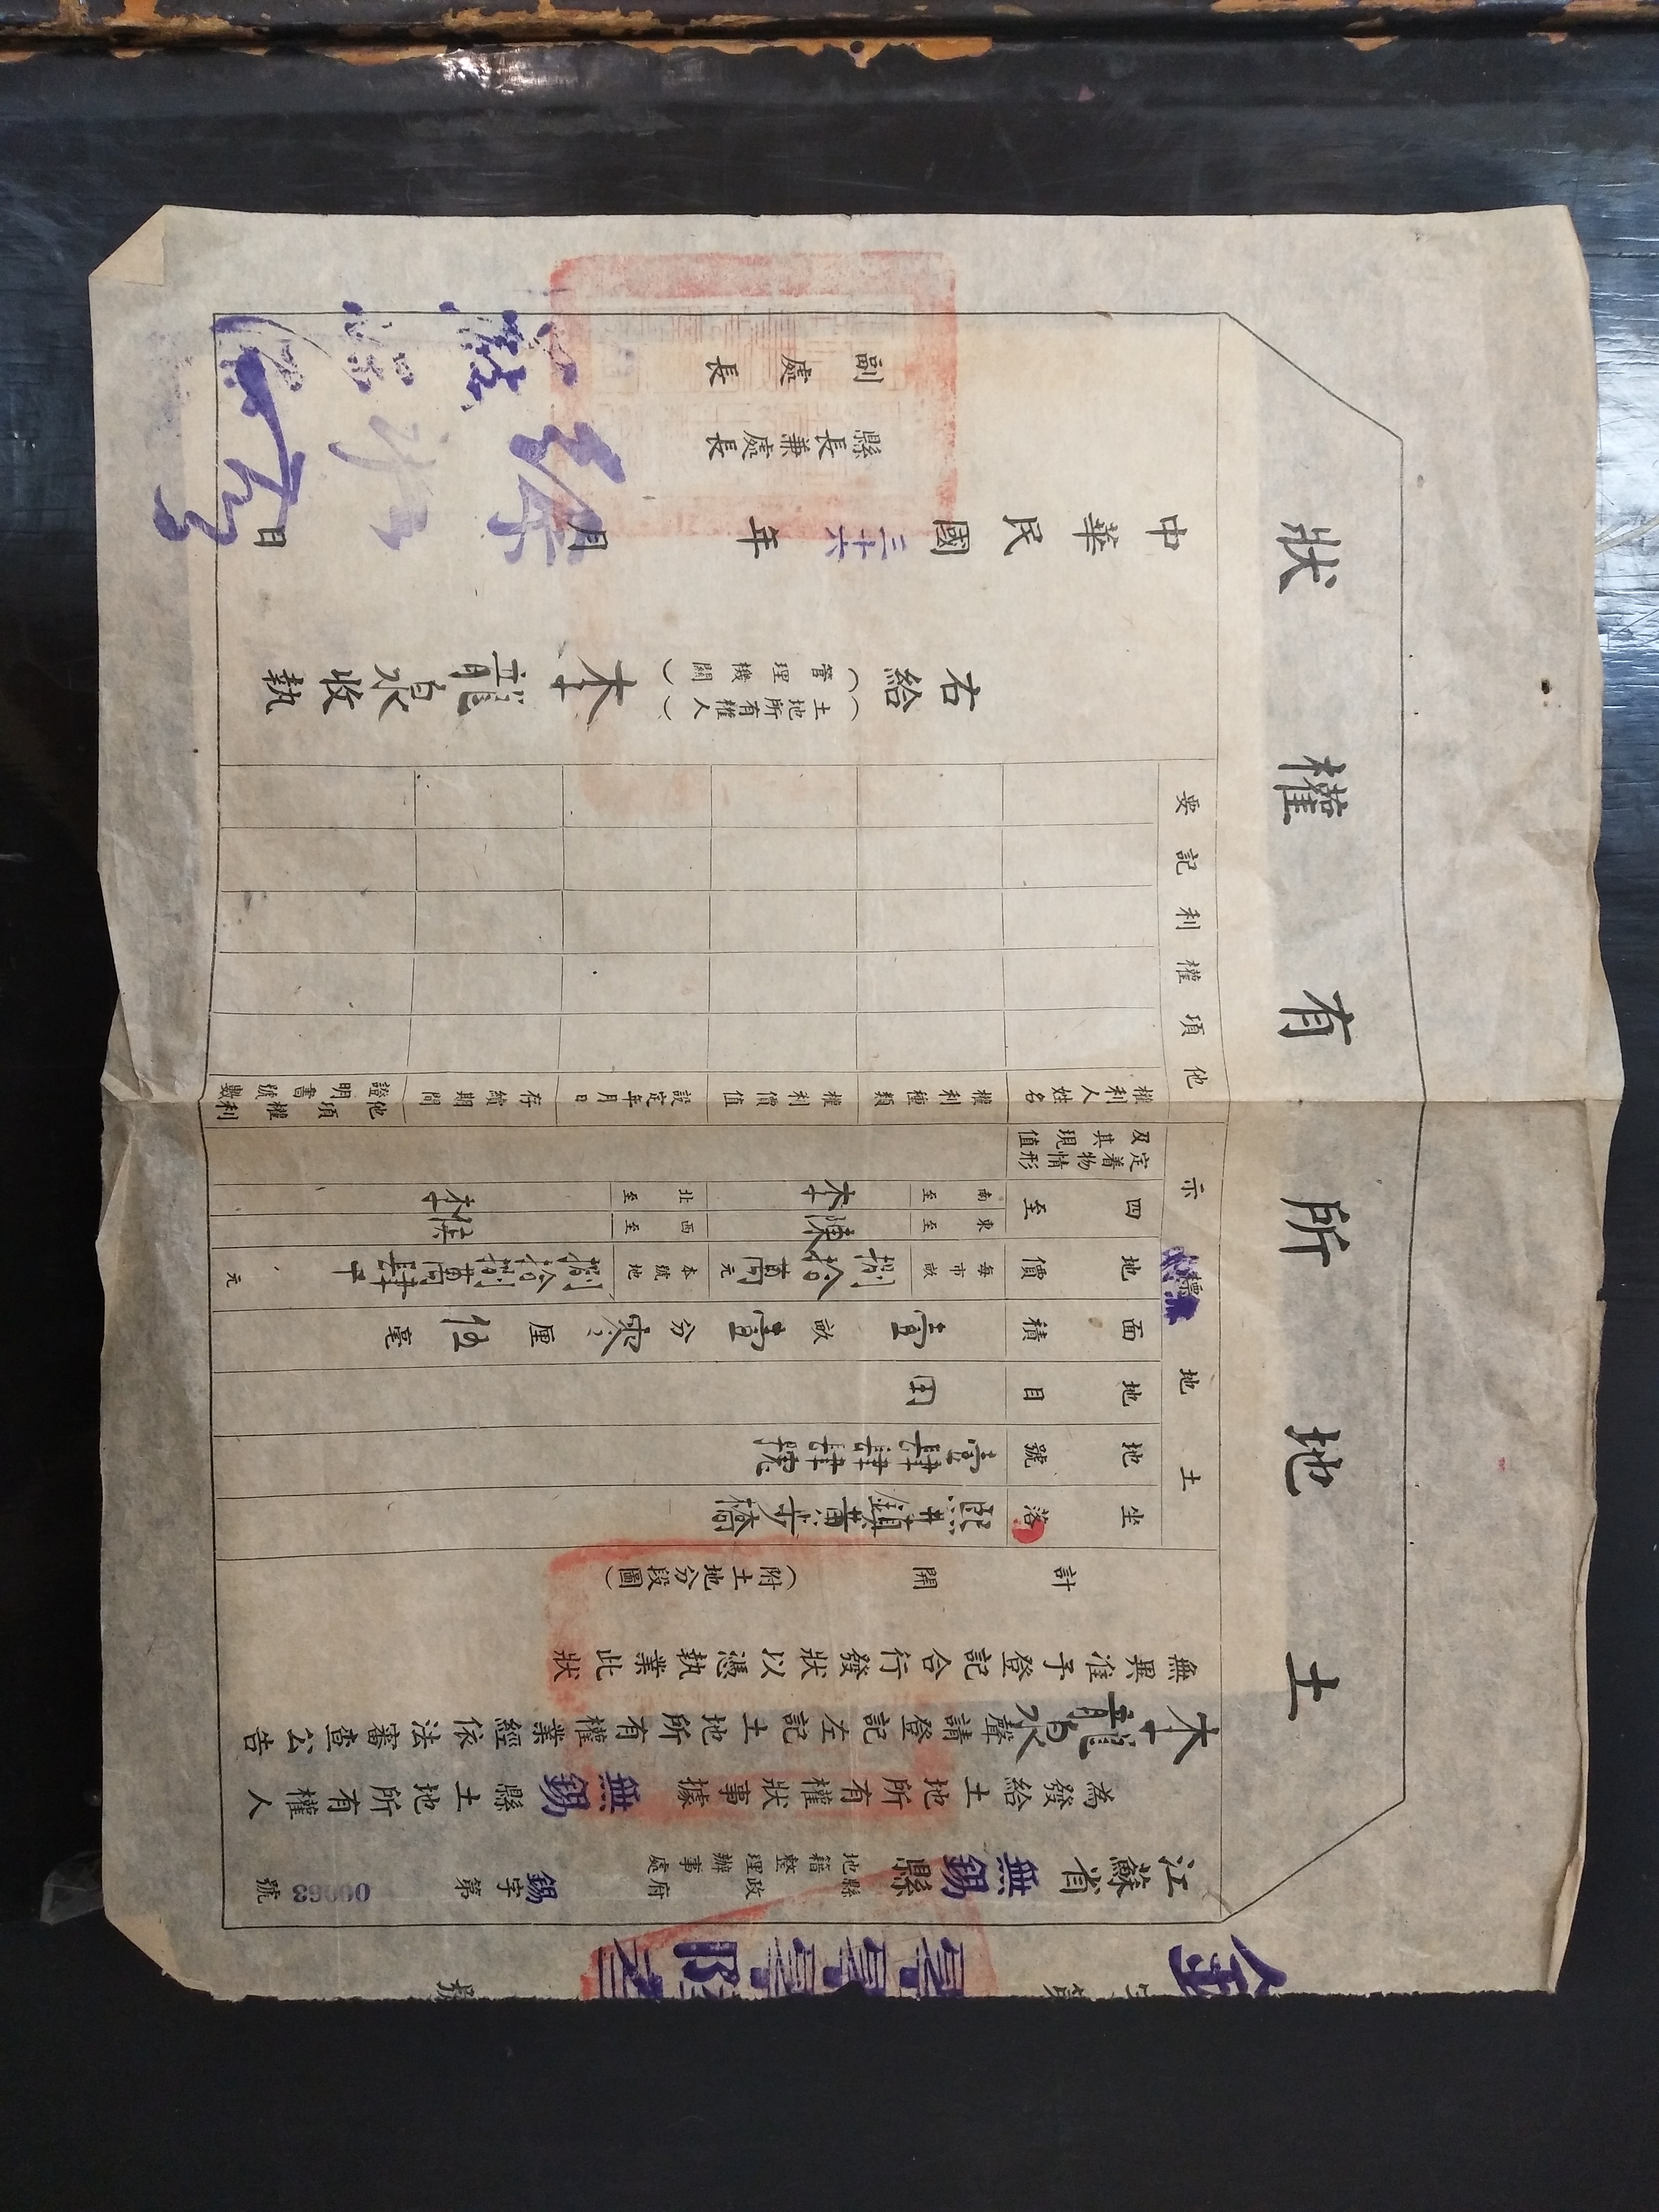 土地所有權狀
江蘇省無錫縣縣政府地籍整理辦事處 錫字第00063號
為發給土地所有權狀事據無錫縣土地所有權人
本龍泉聲請登記左記土地所有權業經依法審查公告
無異准予登記合行發狀以憑執業此狀
計開(附土地分段圖)
土地標示
坐落 熙井鎮黃步橋
地號
地目 田
面積 壹畝壹分零厘伍毫
地價 每市畝 捌拾萬元 本號地 捌拾捌萬肆千元
四至 東至 陳 南至 本 西至 侯 北至 本
定着物情形及其現值
他項權利記要
權利人姓名
權利種類
權利價值
設定年月日
存續期間
他項權利證明書號數
右給(土地所有權人)(管理機關)本龍泉收執
中華民國三十六年 月 日
縣長兼處長 徐
副處長